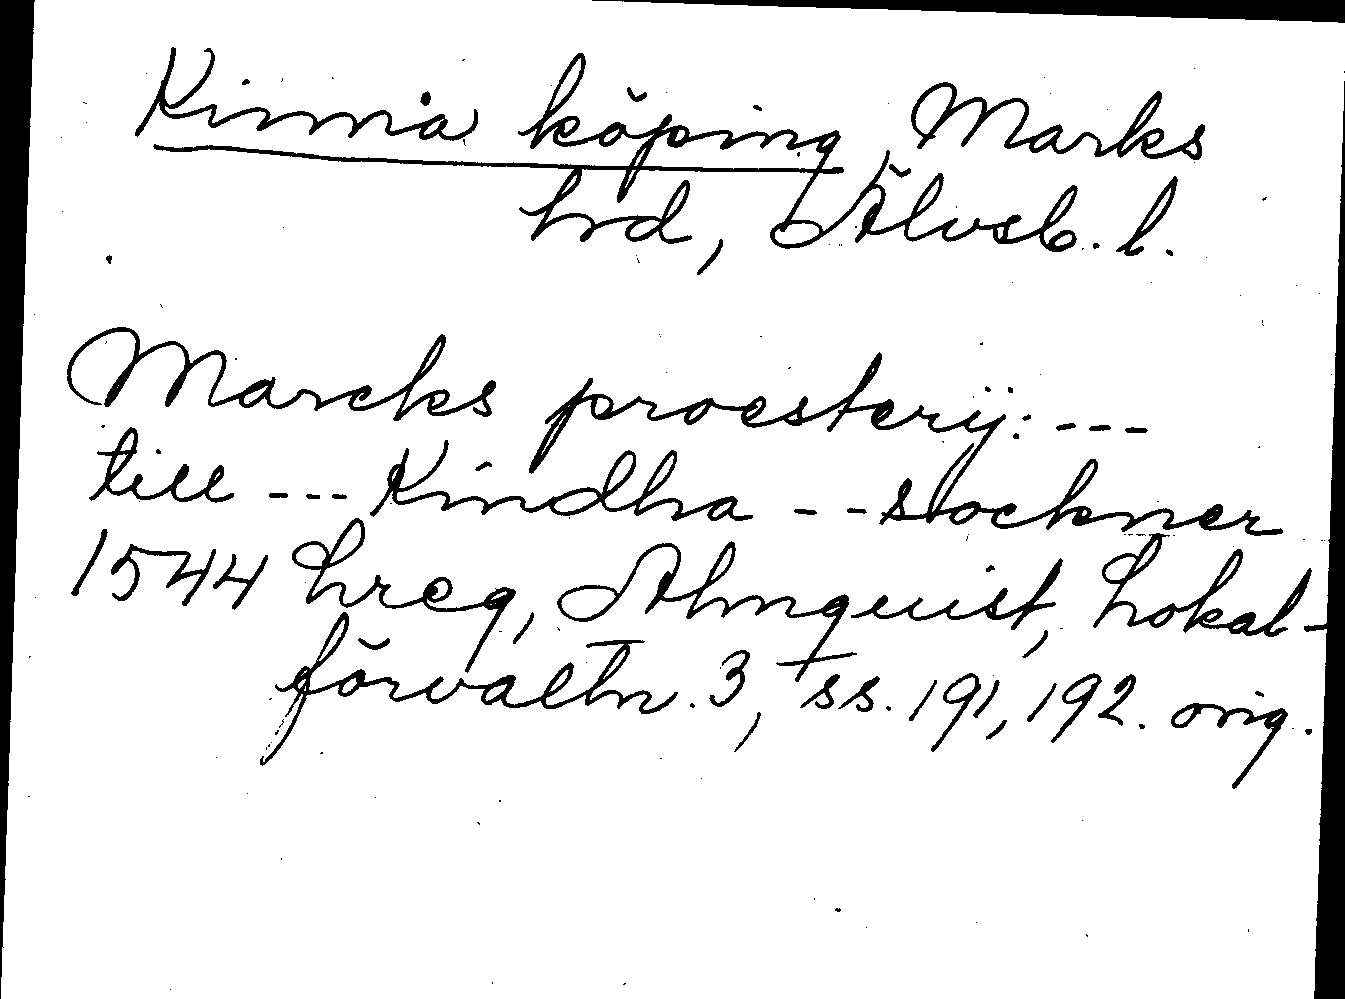 Kinna köping, Marks
hrd, Älvsb. l.
Marcks proesterij: ---
till --- Kindha -- sockner
1544 hreg, Almquist, Lokal-
förvaltn. 3, ss. 191, 192. orig.